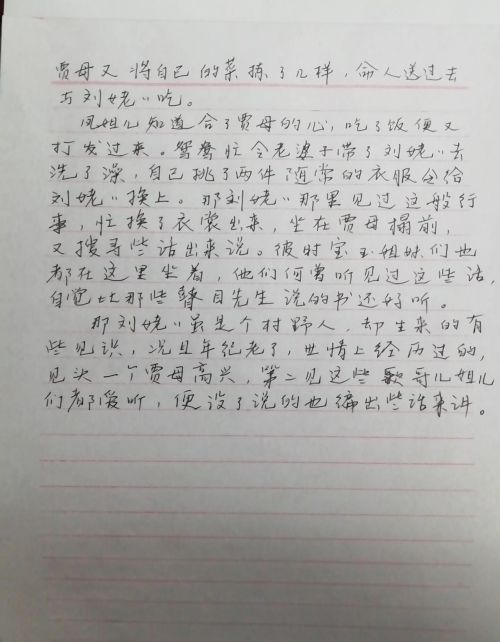 贾母又将自己的菜拣了几样，命人送过去
与刘姥〃吃。
凤姐儿知道合了贾母的心，吃了饭便又
打发过来。鸳鸯忙令老婆子带了刘姥〃去
洗了澡，自己挑了两件随常的衣服令给
刘姥〃换上。那刘姥〃那里见过这般行
事，忙换了衣裳出来，坐在贾母榻前，
又搜寻些话出来说。彼时宝玉姐妹们也
都在这里坐着，他们何曾听见过这些话，
自觉比那些瞽目先生说的书还好听。
那刘姥〃虽是个村野人，却生来的有
些见识，况且年纪老了，世情上经历过的，
见头一个贾母高兴，第二见这些哥儿姐儿
们都爱听，便没了说的也编出些话来讲。